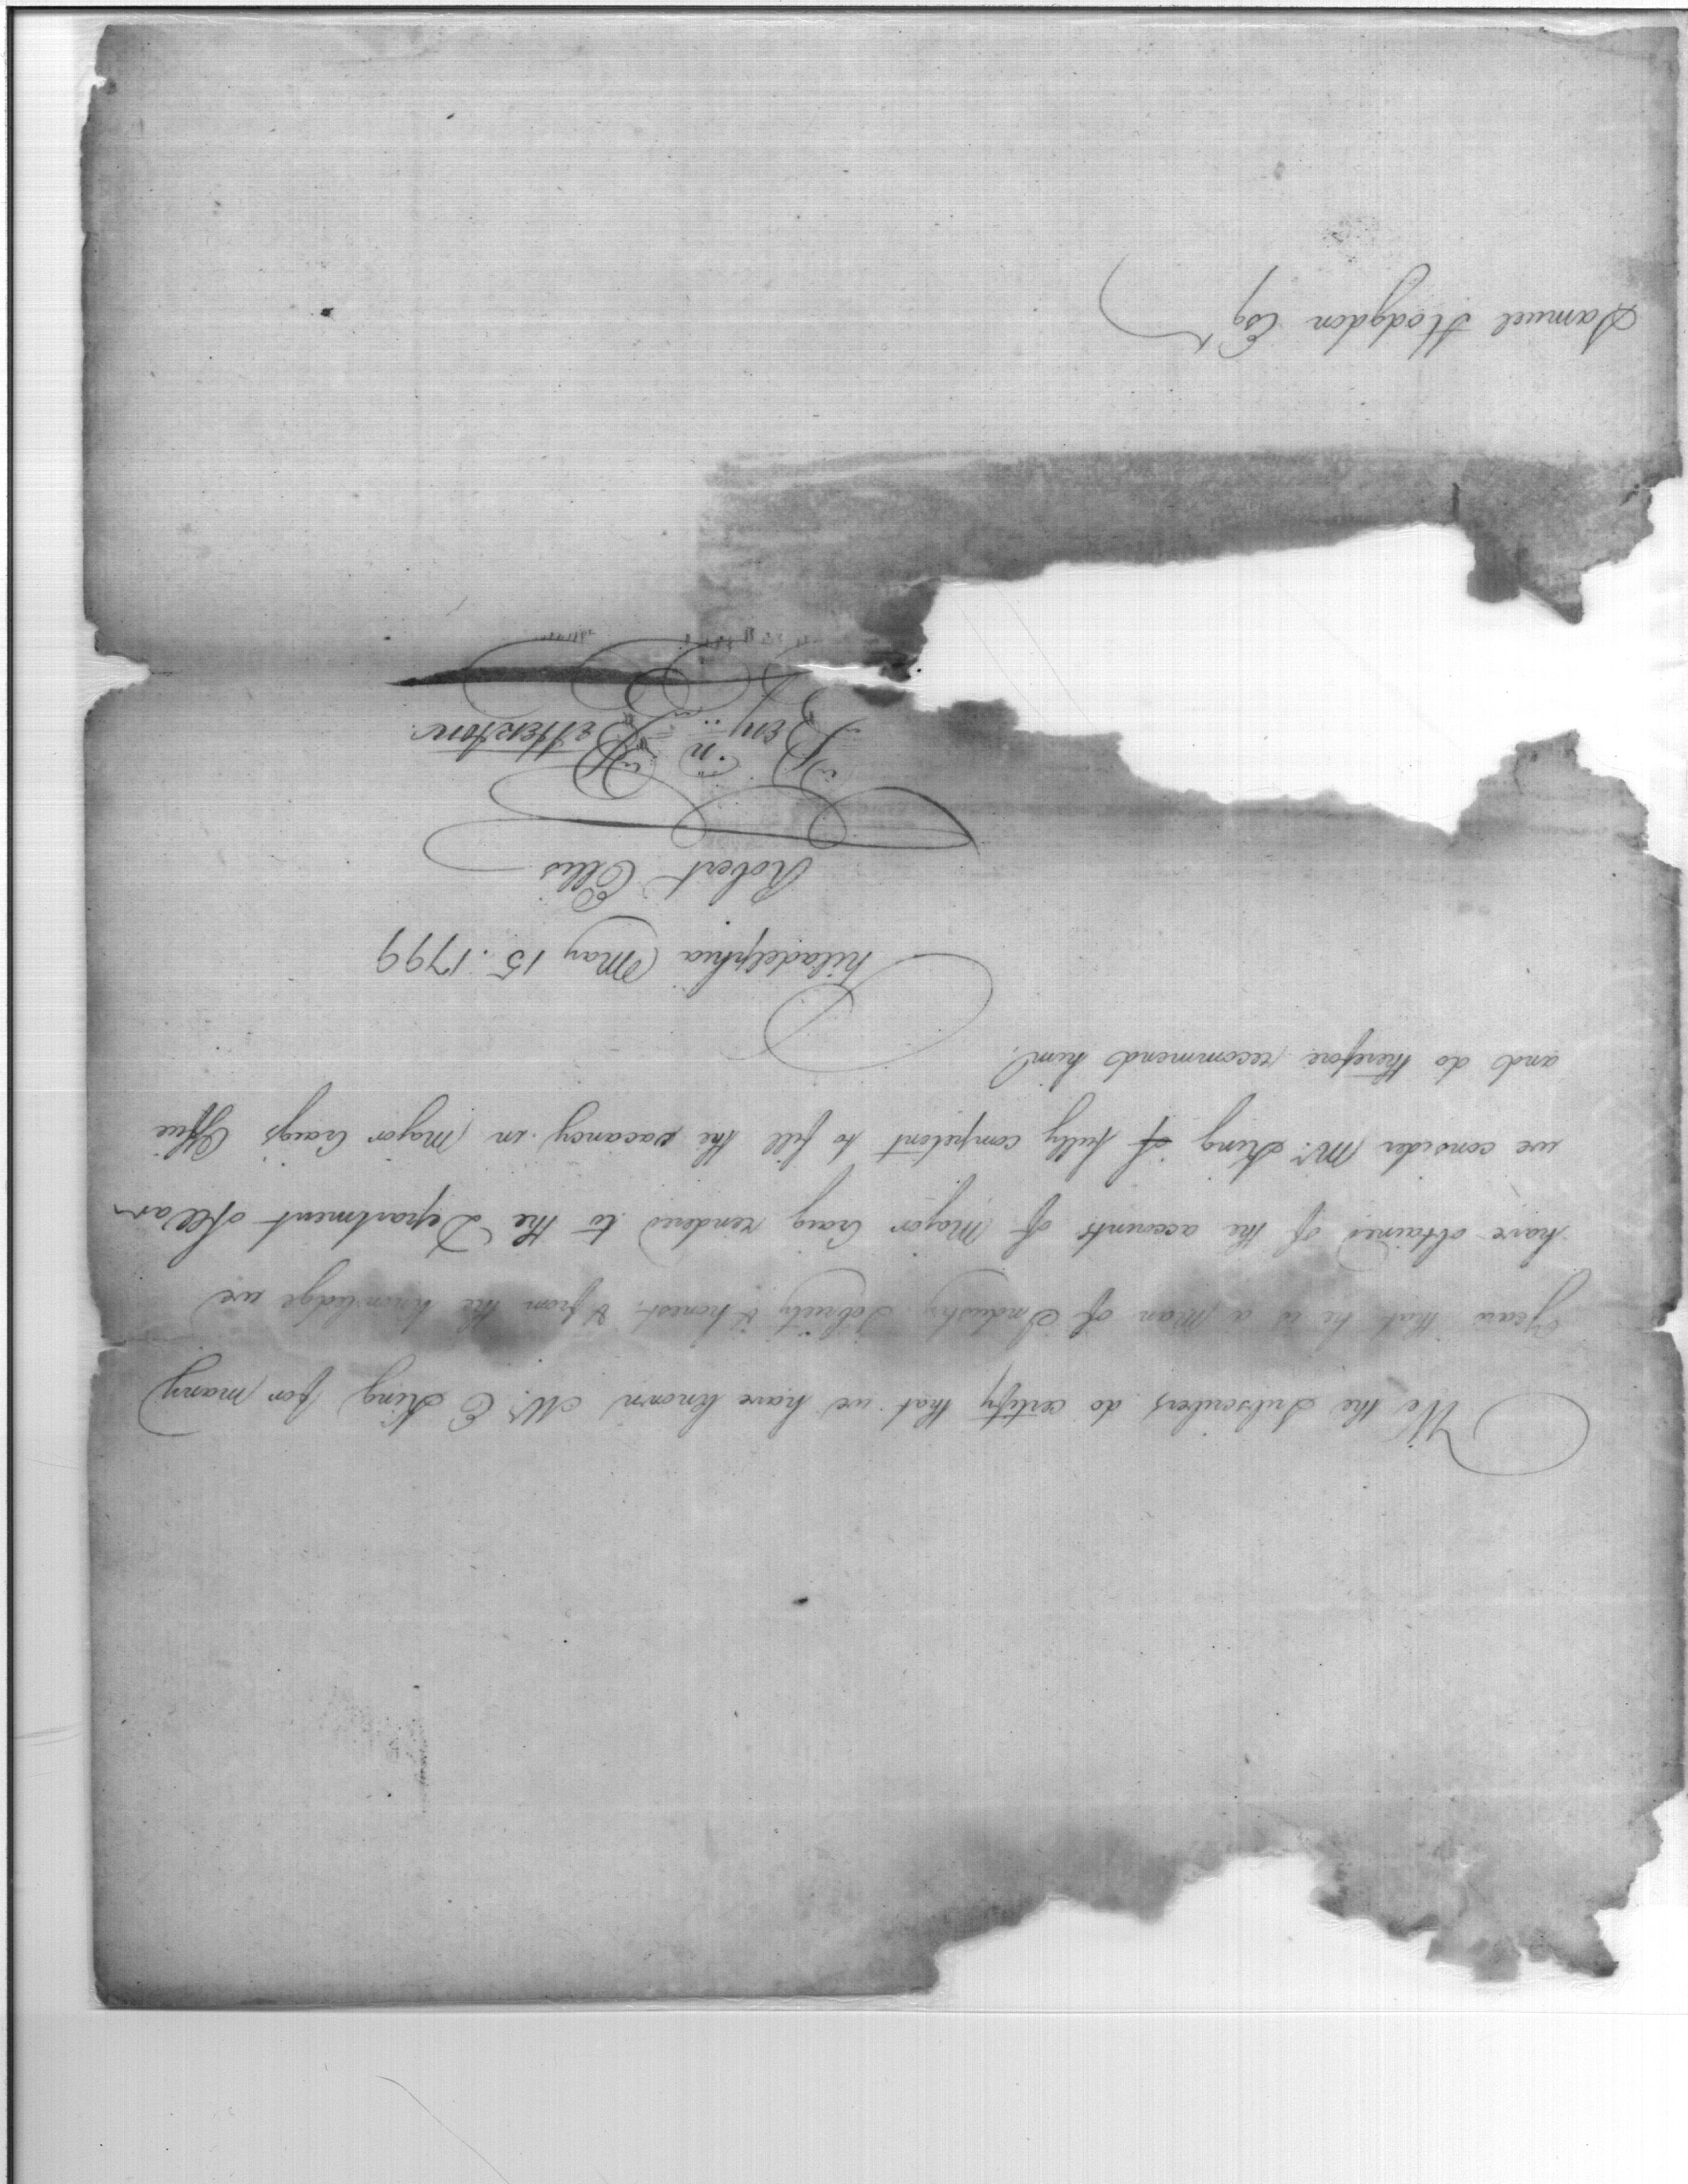 We the Subscribers do certify that we have known Mr. E King for many
years that he is a man of Industry Sobriety & honest. & from the knowledge we
have obtained of the accounts of Major Craig rendered to the Department of War
we consider Mr. King fully competent to fill the vacancy in Major Craigs Office
and do therefore recommend him.
Philadelphia May 15. 1799
Robert Ellis
Benjn Betterton
Samuel Hodgdon Esqr